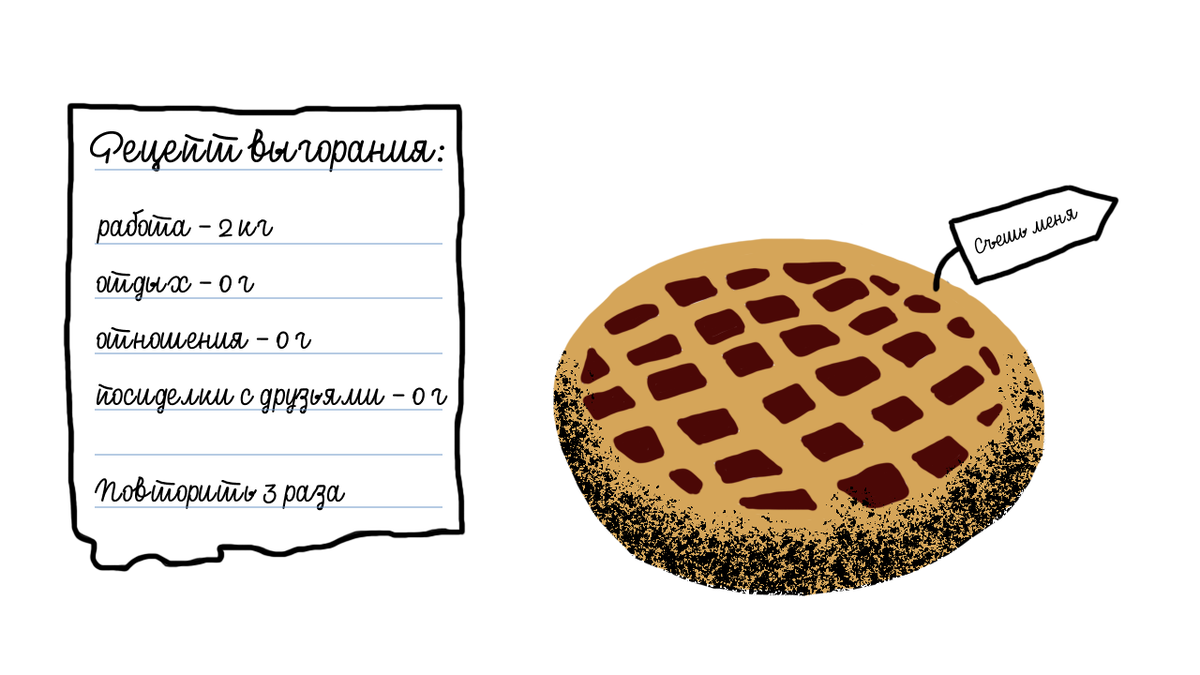 Рецепт выгорания:
работа - 2 кг
отдых - 0 г
отношения - 0 г
посиделки с друзьями - 0 г
Повторить 3 раза
Съешь меня